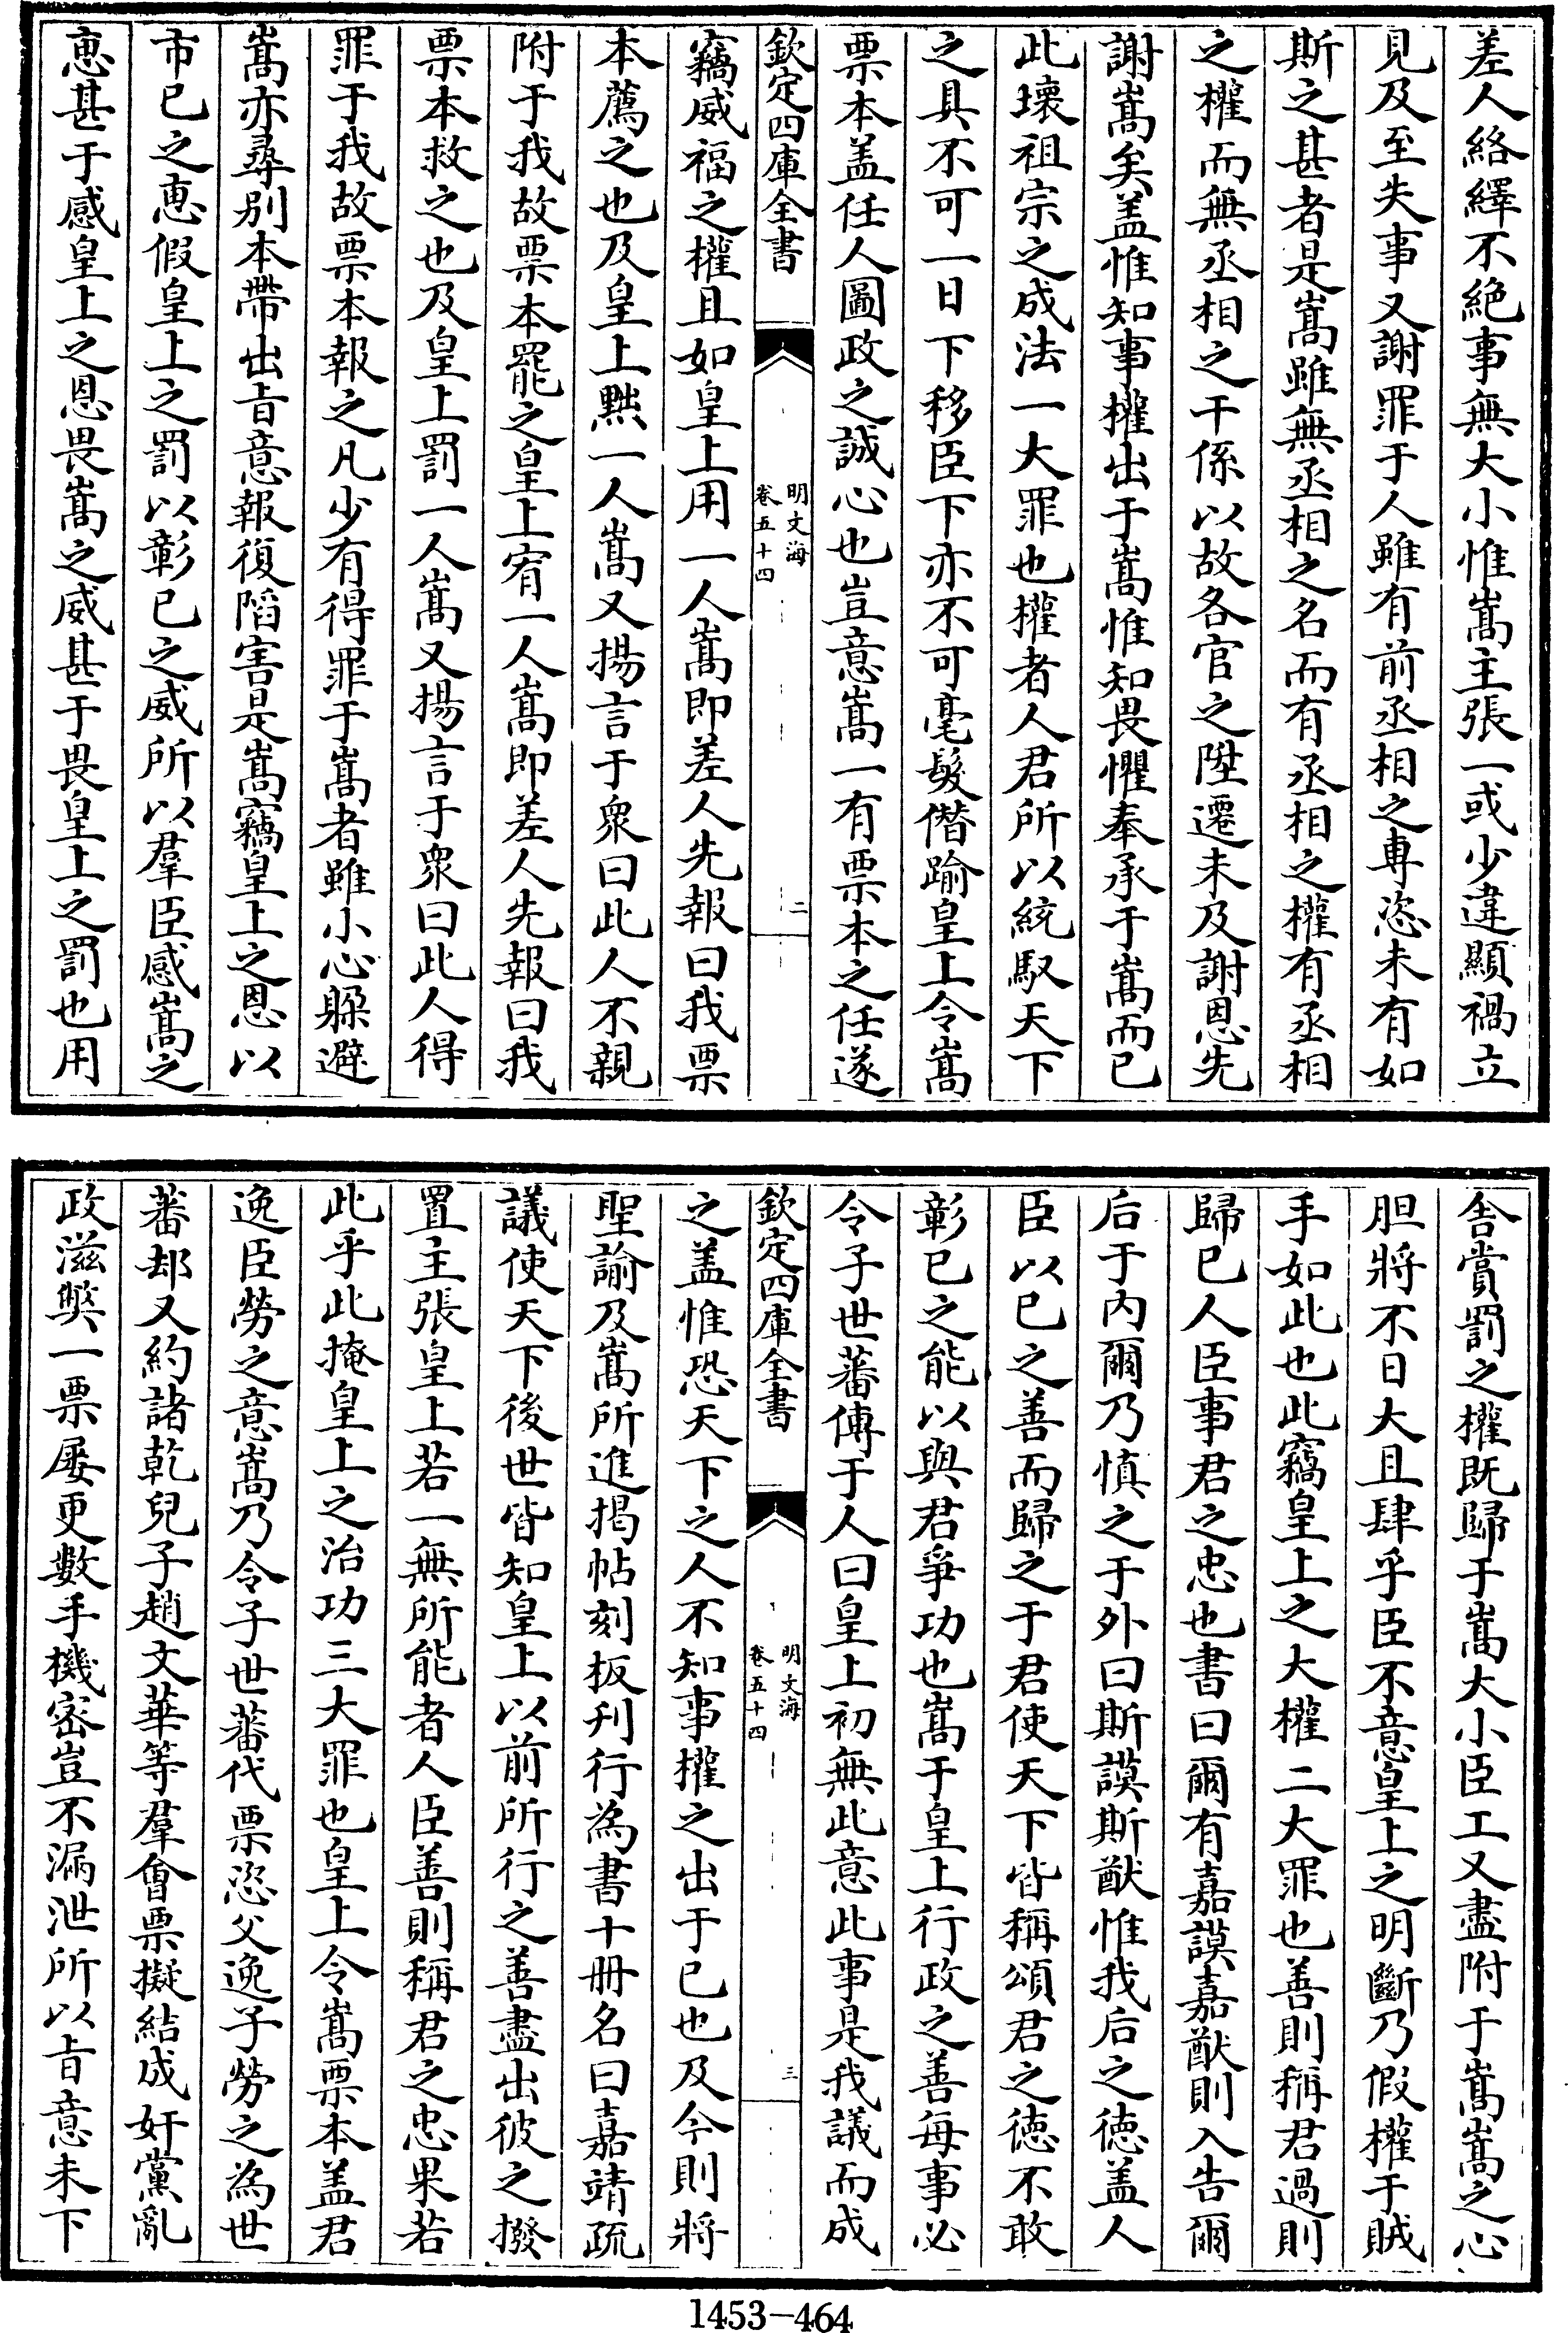 差人絡繹不絶事無大小惟嵩主張一或少違顯禍立
見及至失事又謝罪于人雖有前丞相之專恣未有如
斯之甚者是嵩雖無丞相之名而有丞相之權有丞相
之權而無丞相之干係以故各官之陞遷未及謝恩先
謝嵩矣盖惟知事權出于嵩惟知畏懼奉承于嵩而已
此壞祖宗之成法一大罪也權者人君所以統馭天下
之具不可一日下移臣下亦不可毫髮僭踰皇上令嵩
票本盖任人圖政之誠心也豈意嵩一有票本之任遂
欽定四庫全書
明文海
卷五十四
二
竊威福之權且如皇上用一人嵩即差人先報曰我票
本薦之也及皇上黜一人嵩又揚言于衆曰此人不親
附于我故票本罷之皇上宥一人嵩即差人先報曰我
票本救之也及皇上罰一人嵩又揚言于衆曰此人得
罪于我故票本報之凡少有得罪于嵩者雖小心躱避
嵩亦尋别本帶出旨意報復陷害是嵩竊皇上之恩以
市已之惠假皇上之罰以彰已之威所以羣臣感嵩之
惠甚于感皇上之恩畏嵩之威甚于畏皇上之罰也用
舍賞罰之權既歸于嵩大小臣工又盡附于嵩嵩之心
胆將不日大且肆乎臣不意皇上之明斷乃假權于賊
手如此也此竊皇上之大權二大罪也善則稱君過則
歸已人臣事君之忠也書曰爾有嘉謨嘉猷則入告爾
后于内爾乃慎之于外曰斯謨斯猷惟我后之德盖人
臣以已之善而歸之于君使天下皆稱頌君之德不敢
彰已之能以與君爭功也嵩于皇上行政之善每事必
令子世蕃傳于人曰皇上初無此意此事是我議而成
欽定四庫全書
明文海
卷五十四
三
之盖惟恐天下之人不知事權之出于已也及今則將
聖諭及嵩所進揭帖刻板刋行為書十冊名曰嘉靖疏
議使天下後世皆知皇上以前所行之善盡出彼之撥
置主張皇上若一無所能者人臣善則稱君之忠果若
此乎此掩皇上之治功三大罪也皇上令嵩票本盖君
逸臣勞之意嵩乃令子世蕃代票恣父逸子勞之為世
蕃却又約諸乾兒子趙文華等羣會票擬結成奸黨亂
政滋獘一票屢更數手機密豈不漏泄所以旨意未下
1453-464